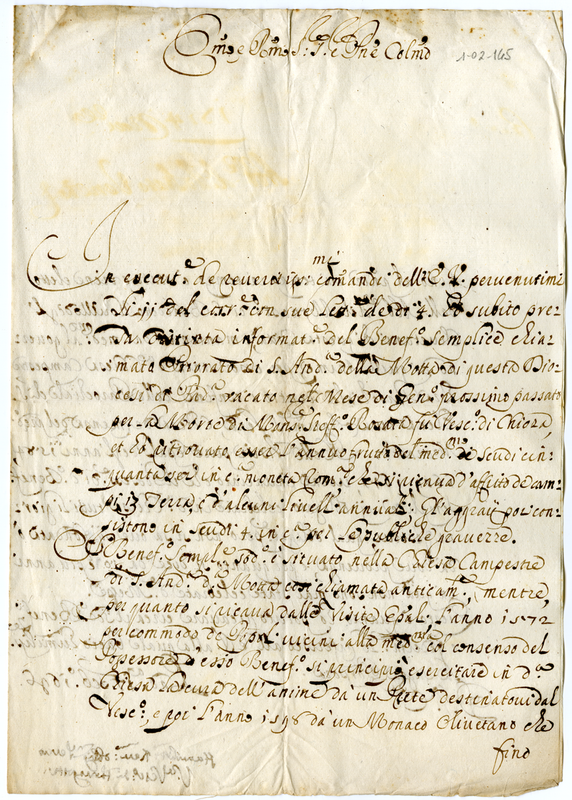 Em̃o e Rm̃o S: S: e Pñe Colmõ
1-02-165
In execut.e de reveritiss:mi comandi dell'E.V. pervenutimi
li 11 del corr.e con sue let.e de di 4. ho subito pre-
sa distinta informat.e del Benef.o semplice chia-
mato Priorato di S. And.a della Motta di questa Dio-
cesi di Pad.a vacato nel Mese di Gen.o prossimo passato
per la Morte di Mons. Steff.o Rosata fu Vesc.o di Chioza,
et ho ritrovato esser l'annuo frutto del med.mo de scudi cin-
quanta sei in c.a moneta Rom.a che si cienu d'affitto de cam-
pi 13 Terra, e d'alcuni livelli annuali. Gl'aggravij poi con-
sistono in scudi 4. in c.a per le publiche gravezze.
Il Benef.o sempl.e sod.o è situato nella Chiesa Campestre
di S. And.a d.a Motta così chiamata anticam.e, mentre,
per quanto si ricava dalle Visite Epali l'anno 1572
per commodo de Popoli vicini alla med.ma col consenso del
Possessore d'esso Benef.o si principiò esercitare in d.a
Chiesa la cura dell'anime da un Prete destinatovi dal
Vesc.o, e poi l'anno 1598 da un Monaco Olivetano che
fino